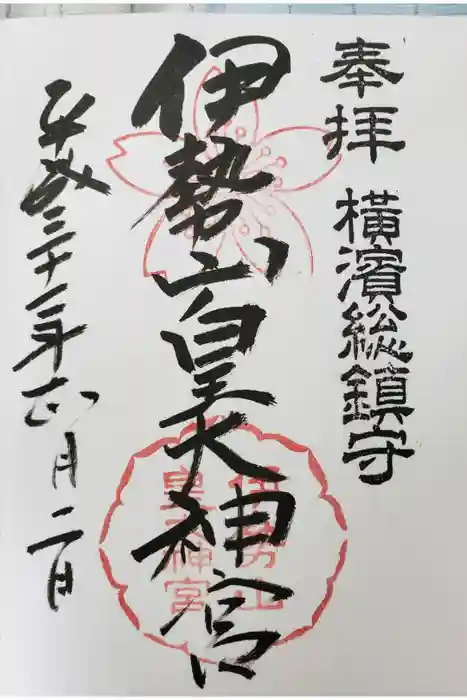 奉拝
横濱総鎮守
伊勢山皇大神宮
伊勢山
皇大神宮
平成三十一年正月二日